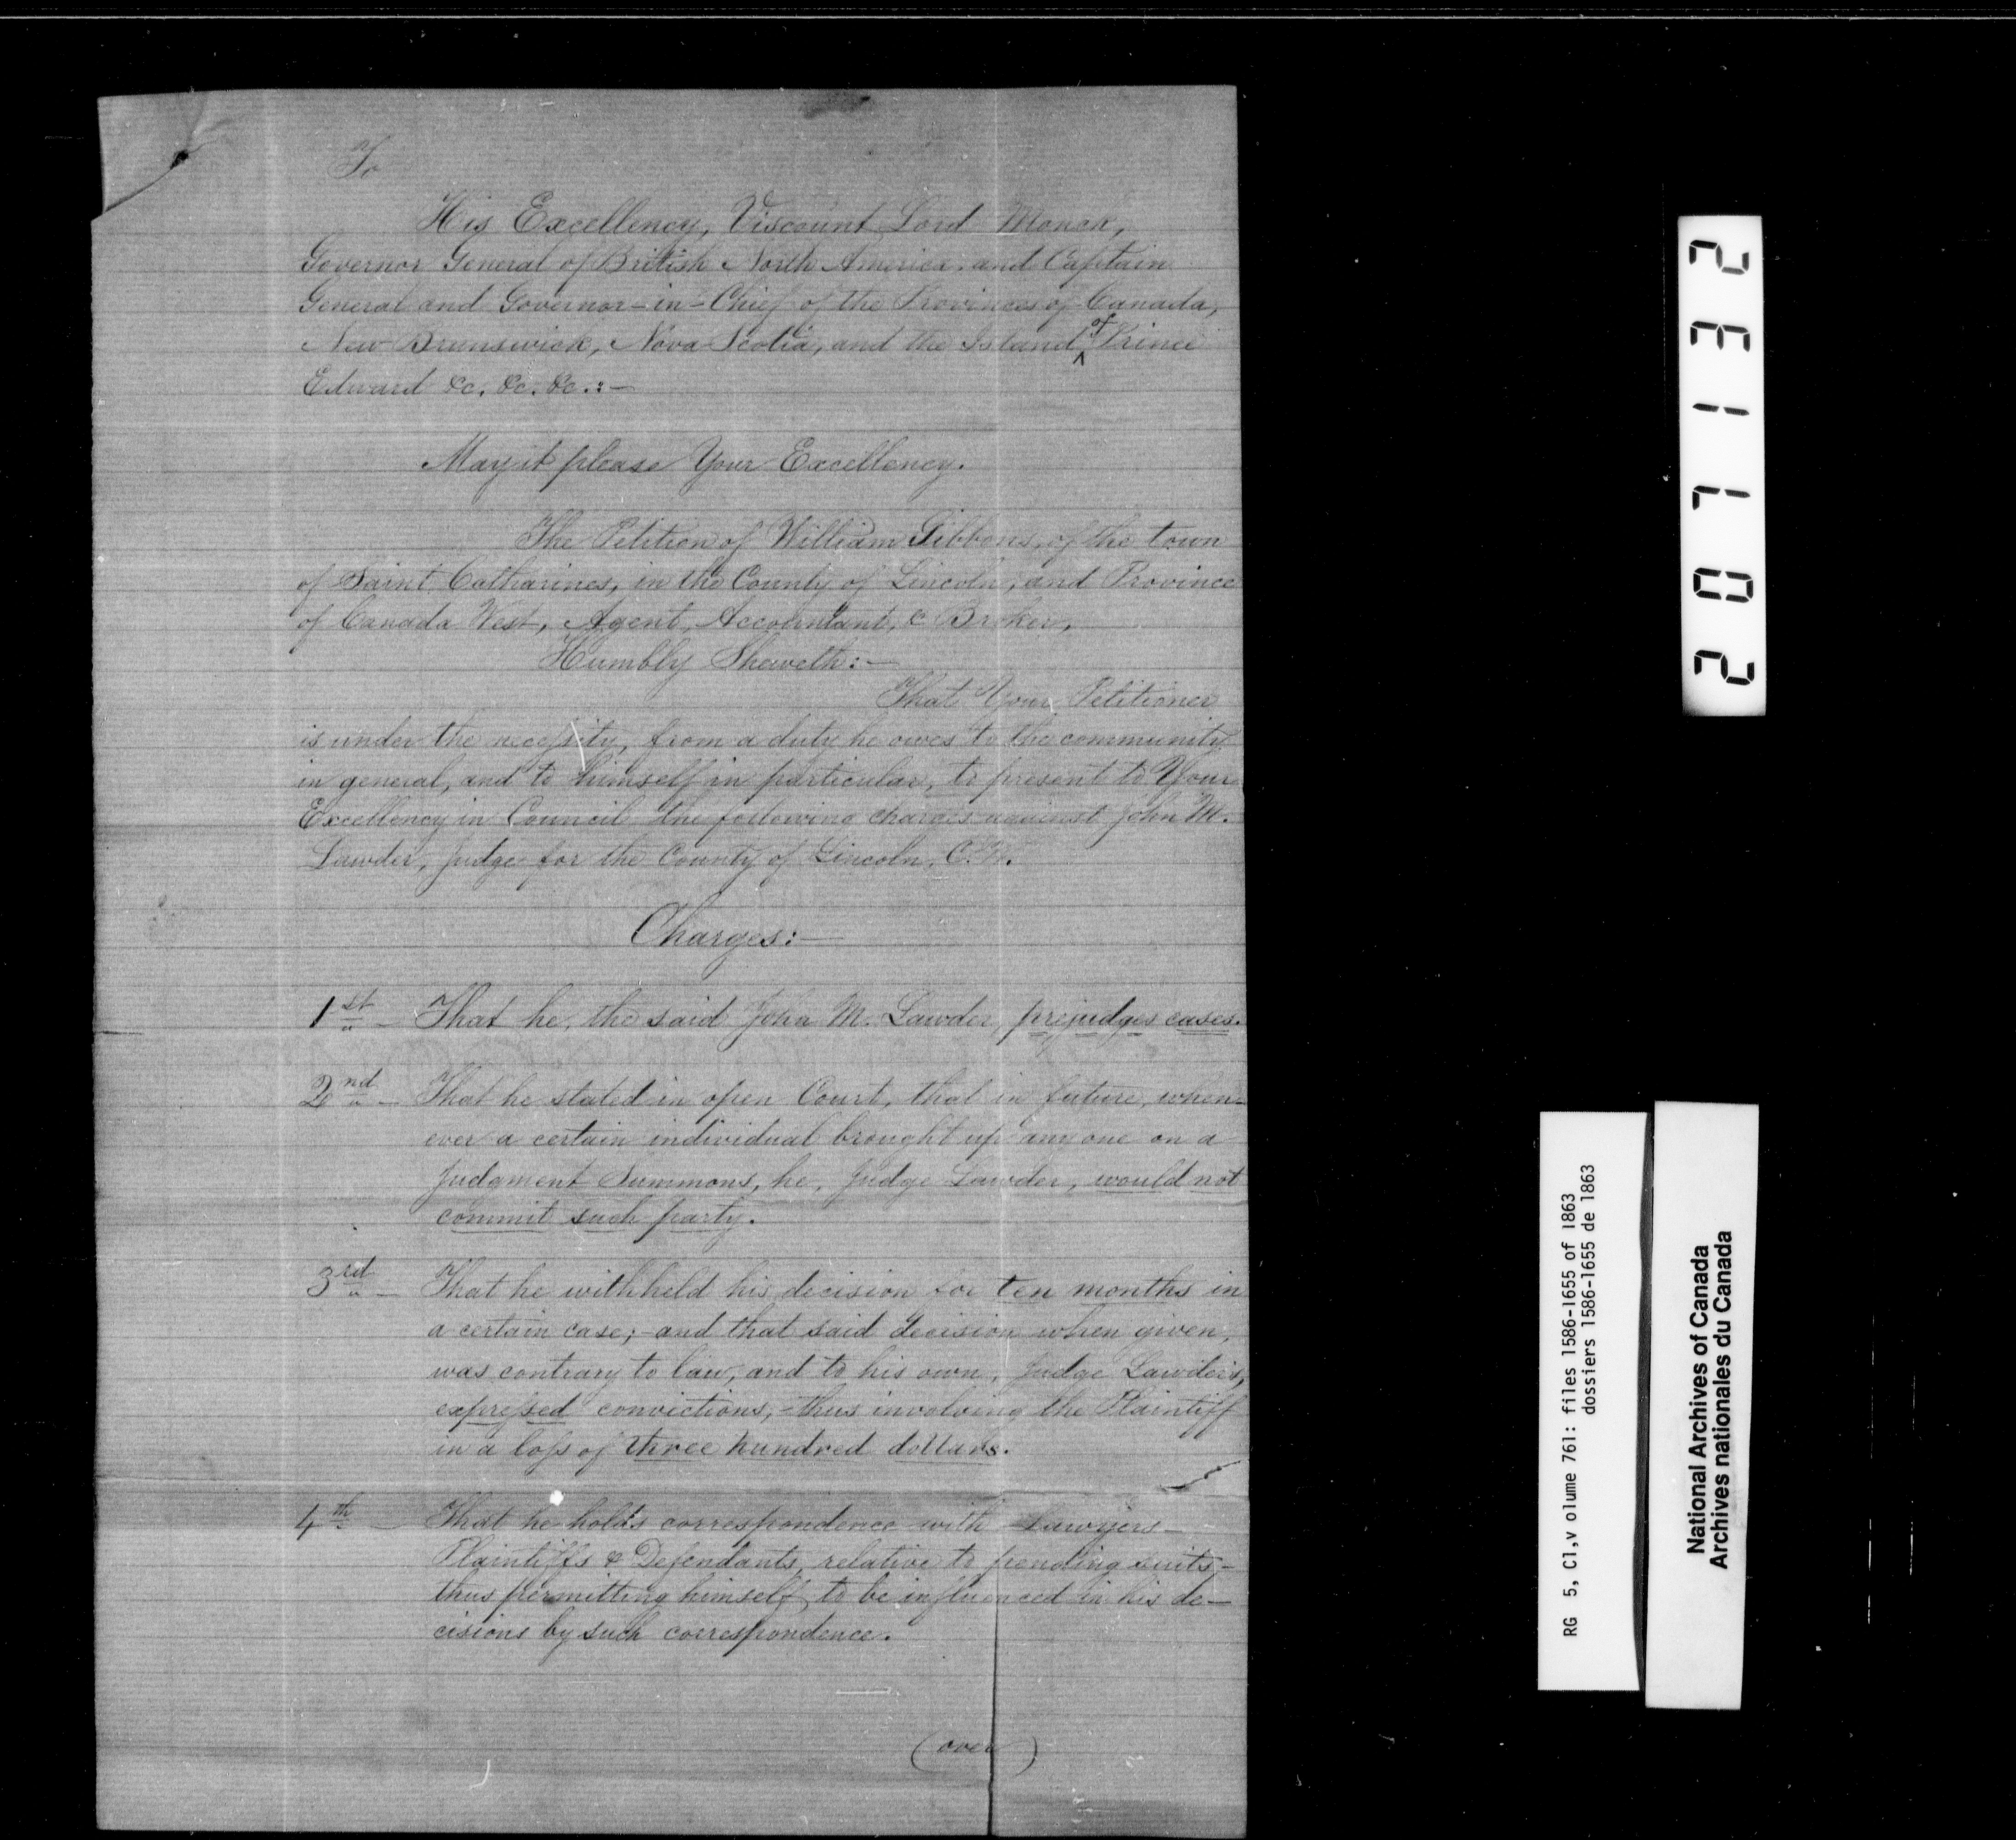 To
His Excellency, Viscount Lord Monck,
Governor General of British North America, and Captain
General and Governor-in-Chief of the Provinces of Canada,
New-Brunswick, Nova Scotia, and the Island of Prince
Edward &c. &c. &c.:—
May it please Your Excellency.
The Petition of William Gibbons, of the town
of Saint Catharines, in the County of Lincoln, and Province
of Canada West, Agent, Accountant, & Broker,
Humbly Sheweth:—
That Your Petitioner
is under the necessity, from a duty he owes to the community
in general, and to himself in particular, to present to Your
Excellency in Council the following charges against John M.
Lawder, Judge for the County of Lincoln, C.W.
Charges:—
1st — That he, the said John M. Lawder, prejudges cases.
2nd — That he stated in open Court, that in future, when-
ever a certain individual brought up any one on a
Judgment Summons, he, Judge Lawder, would not
commit such party.
3rd — That he withheld his decision for ten months in
a certain case;—and that said decision when given,
was contrary to law, and to his own, Judge Lawder's,
expressed convictions,—thus involving the Plaintiff
in a loss of three hundred dollars.
4th — That he holds correspondence with Lawyers—
Plaintiffs & Defendants, relative to pending suits,—
thus permitting himself to be influenced in his de-
cisions by such correspondence.
(over)
207132
RG 5, C1,v olume 761: files 1586-1655 of 1863
dossiers 1586-1655 de 1863
National Archives of Canada
Archives nationales du Canada